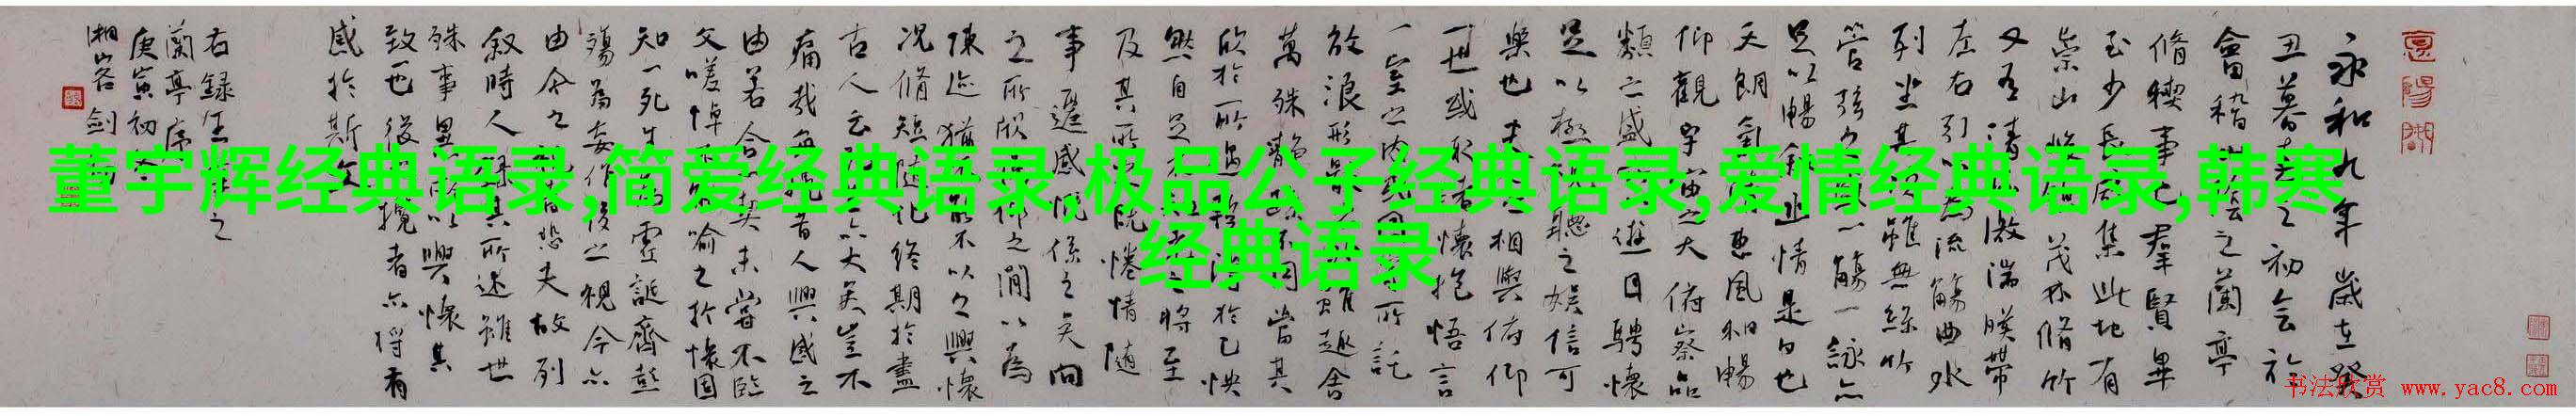 董宇辉经典语录,简爱经典语录,极品公子经典语录,爱情经典语录,韩寒
经典语录
永和九年歲在癸
丑暮春之初会於
會稽山陰之蘭亭
脩稧事也羣賢畢
至少長咸集此地有
崇山峻領茂林脩竹
又有清流激湍暎帶
左右引以為流觴曲水
列坐其次雖無絲竹
管弦之盛一觴一詠亦
足以暢叙幽情是日也
天朗氣清惠風和暢
仰觀宇宙之大俯察品
類之盛所以遊目騁懷
足以極視聽之娛信可
樂也夫人之相與俯仰
一世或取諸懷抱悟言
一室之内或因寄所託
放浪形骸之外雖趣舍
萬殊靜躁不同當其
欣於所遇輒得於己怏
然自足不知老之將至
及其所之既惓情隨
事遷感慨係之矣向
之所欣俛仰之間以為
陳迹猶不能不以之興懷
況脩短隨化終期於盡
古人云死生亦大矣豈不
痛哉每覽昔人興感之
由若合一契未嘗不臨
文嗟悼不能喻之於懷固
知一死生為虛誕齊彭
殤為妄作後之視今亦
由今之視昔悲夫故列
叙時人錄其所述雖世
殊事異所以興懷其
致一也後之攬者亦將有
感於斯文
右録王羲之
蘭亭序
庚寅初冬
湘客剑
书法欣赏 www.yac8.com